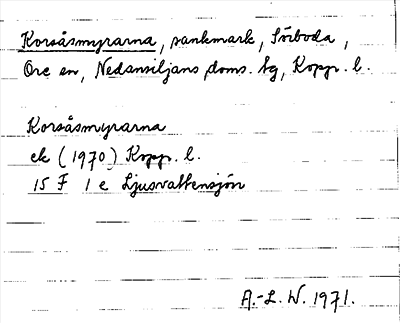 Korsåsmyrarna, sankmark, Sörboda,
Ore en, Nedansiljans doms. tg, Kopp. l.
Korsåsmyrarna
ek (1970) Kopp. l.
15 F 1 e Ljusvattensjön
A.-L. W. 1971.